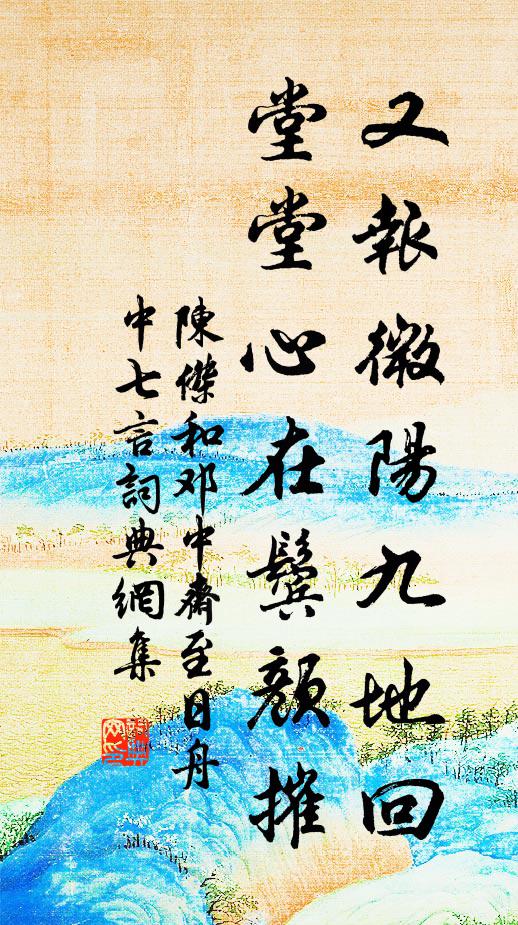 又報微陽九地回
堂堂心在鬢顏摧
陳傑和邓中齋至日舟
中七言詞典網集